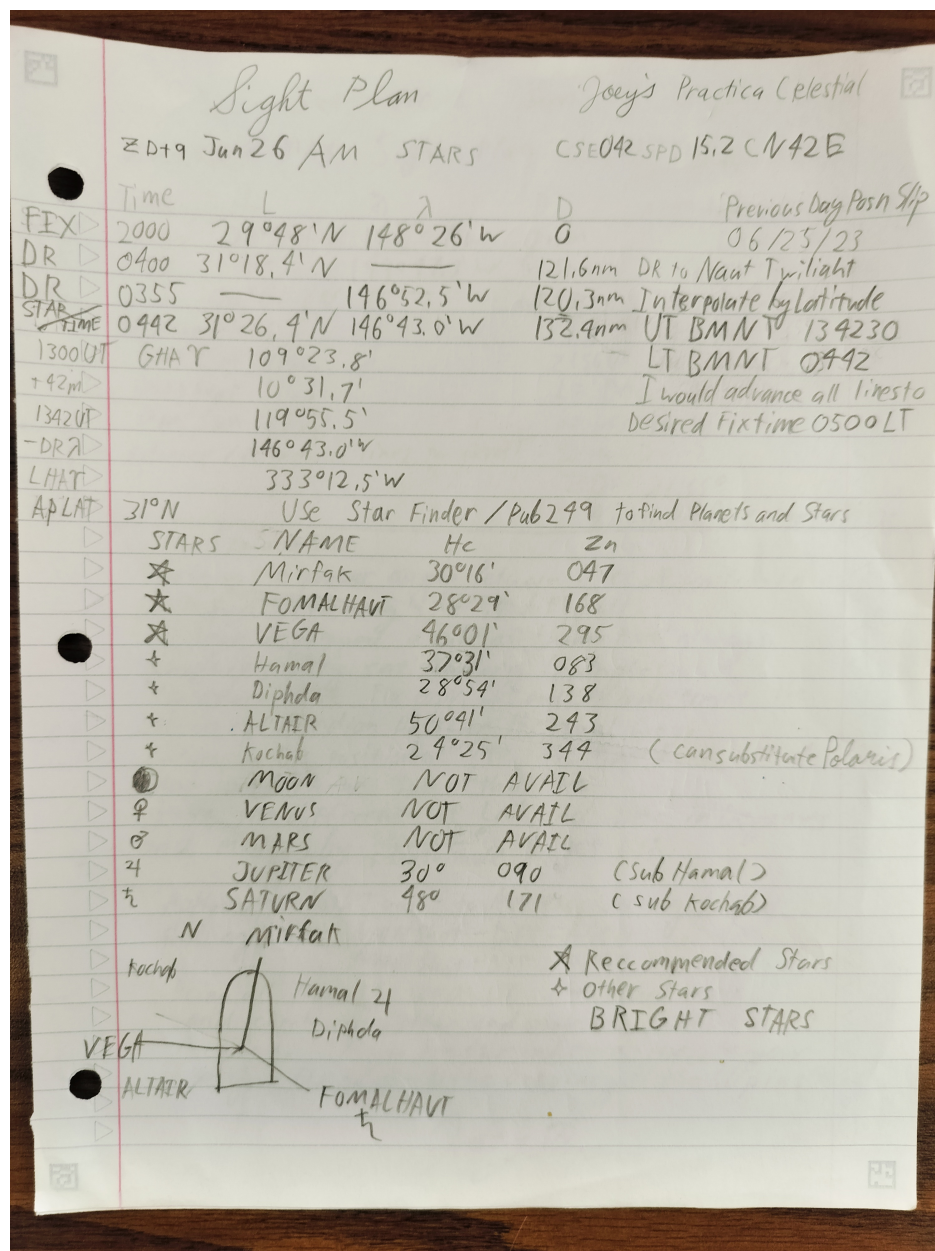 Sight Plan Joey's Practica Celestial
ZD+9 Jun 26 AM STARS CSE 042 SPD 15.2 C N42E
Time L λ D Previous Day Posn Slip
FIX 2000 29°48'N 148°26'W 0 06/25/23
DR 0400 31°18,4'N — 121,6nm DR to Naut Twilight
DR 0355 — 146°52,5'W 120,3nm Interpolate by Latitude
STAR TIME 0442 31°26,4'N 146°43.0'W 132,4nm UT BMNT 134230
1300UT GHA♈ 109°23.8' LT BMNT 0442
+42m 10°31.7' I would advance all lines to
1342UT 119°55.5' Desired Fix time 0500 LT
-DRλ 146°43.0'W
LHA♈ 333°12,5'W
AP LAT 31°N Use Star Finder/Pub 249 to find Planets and Stars
STARS NAME Hc Zn
☆ Mirfak 30°16' 047
☆ FOMALHAUT 28°29' 168
☆ VEGA 46°01' 295
✧ Hamal 37°31' 083
✧ Diphda 28°54' 138
✧ ALTAIR 50°41' 243
✧ Kochab 24°25' 344 (can substitute Polaris)
MOON NOT AVAIL
♀ VENUS NOT AVAIL
♂ MARS NOT AVAIL
♃ JUPITER 30° 090 (sub Hamal)
♄ SATURN 48° 171 (sub Kochab)
N Mirfak
Kochab
Hamal ♃
Diphda
VEGA
ALTAIR
FOMALHAUT
♄
☆ Reccommended Stars
✧ Other Stars
BRIGHT STARS